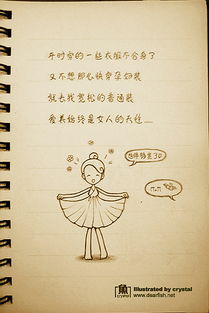 平时穿的一些衣服不合身了
又不想那么快穿孕妇装
就去找宽松的普通装
爱美始终是女人的天性......
crystal
Illustrated by crystal